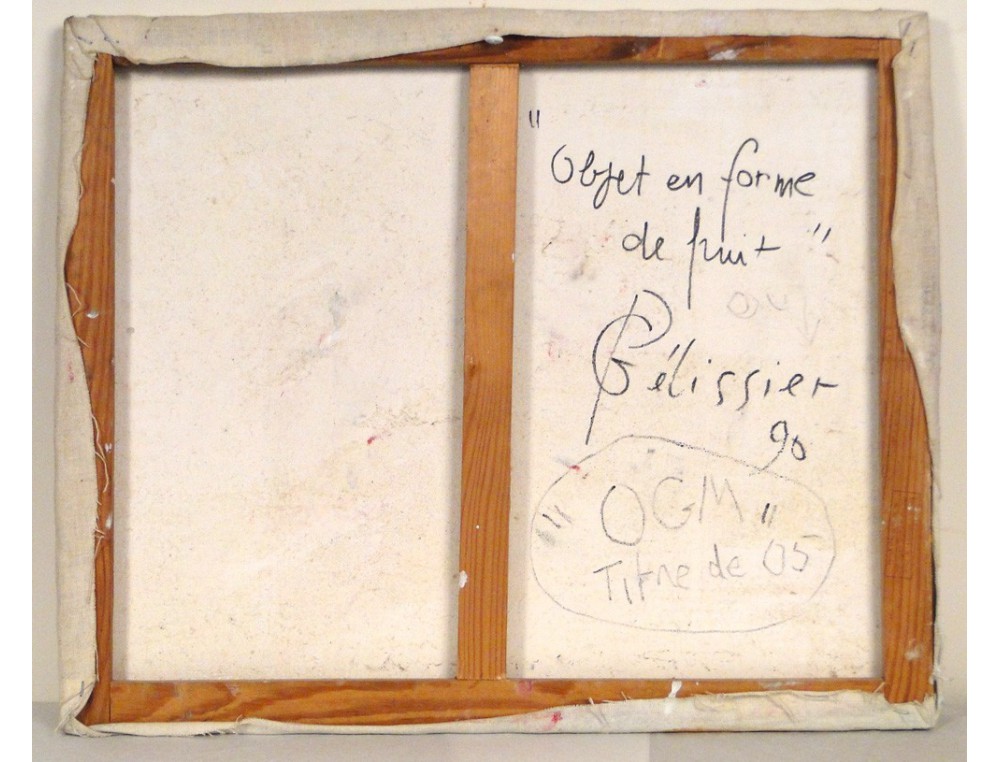 "Objet en forme
de fruit"
Pélissier
90
"OGM"
Titre de 05